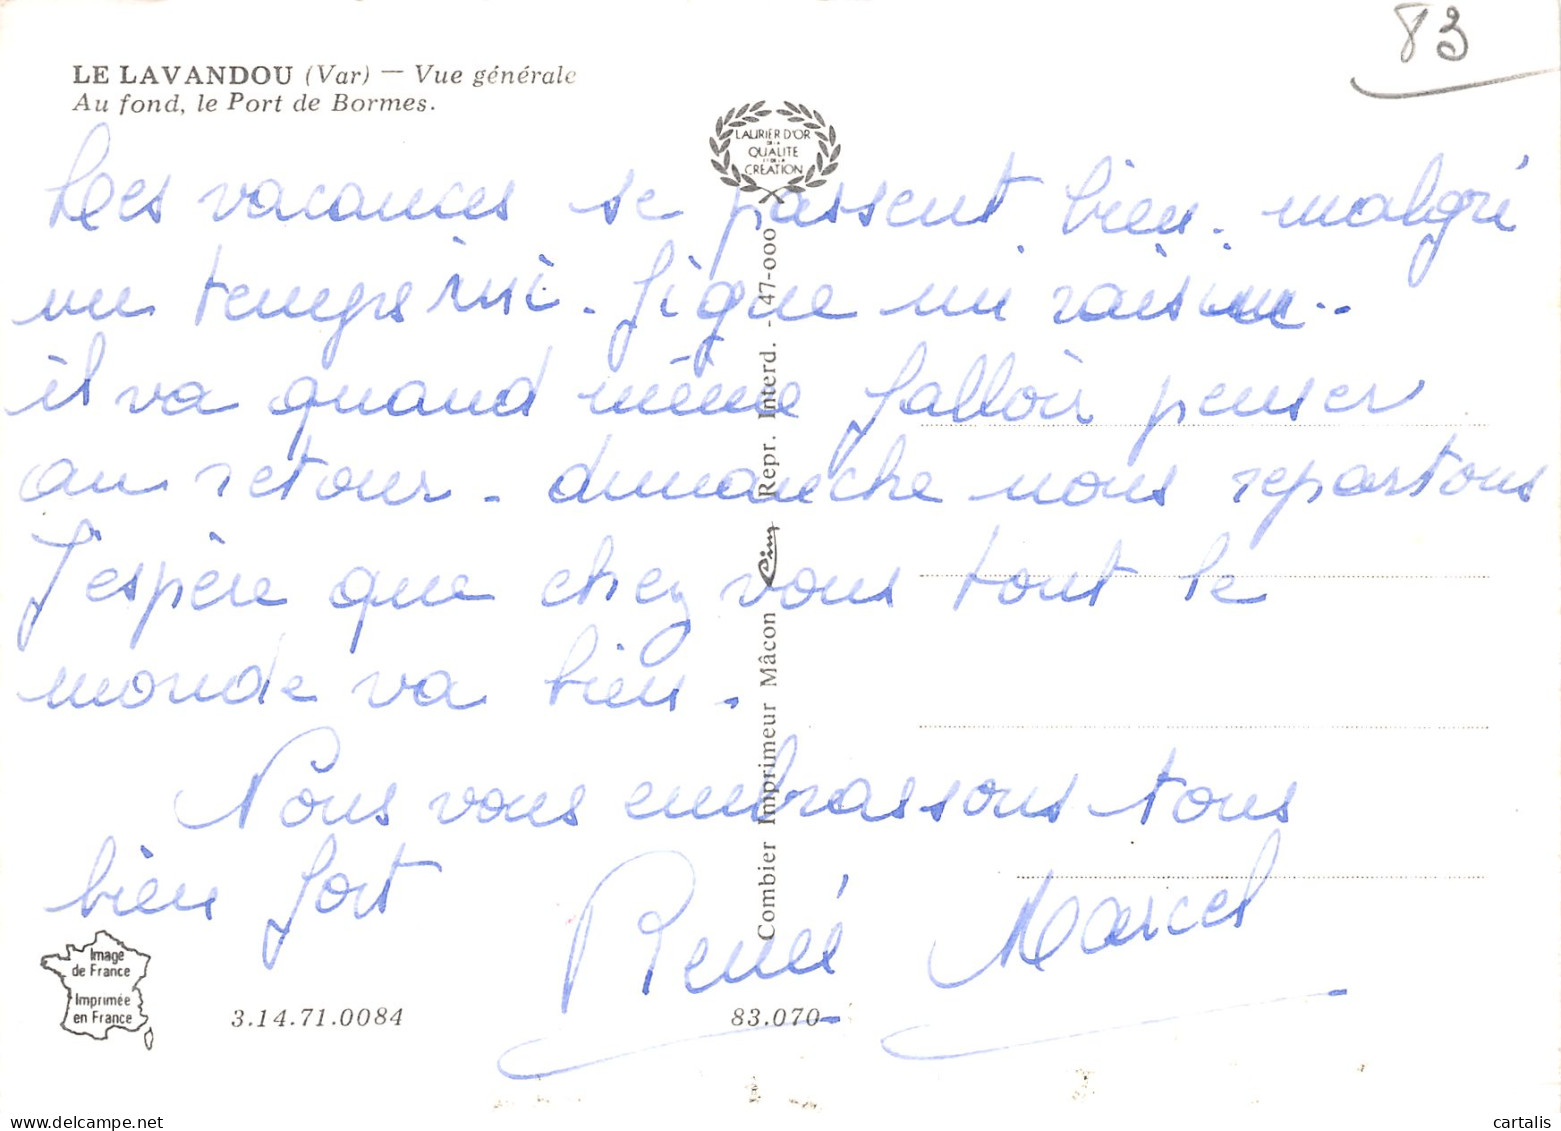 83
LE LAVANDOU (Var) — Vue générale
Au fond, le Port de Bormes.
LAURIER D'OR
DE LA
QUALITE
ET DE LA
CREATION
Les vacances se passent bien. malgré
un temps mi. figue mi raisin..
il va quand même falloir penser
au retour - dimanche nous repartons
J'espère que chez vous tout le
monde va bien.
Nous vous embrassons tous
bien fort
René Marcel
Combier Imprimeur Mâcon Cim Repr. Interd. - 47-000
Image
de France
Imprimée
en France
3.14.71.0084
83.070
delcampe.net
cartalis